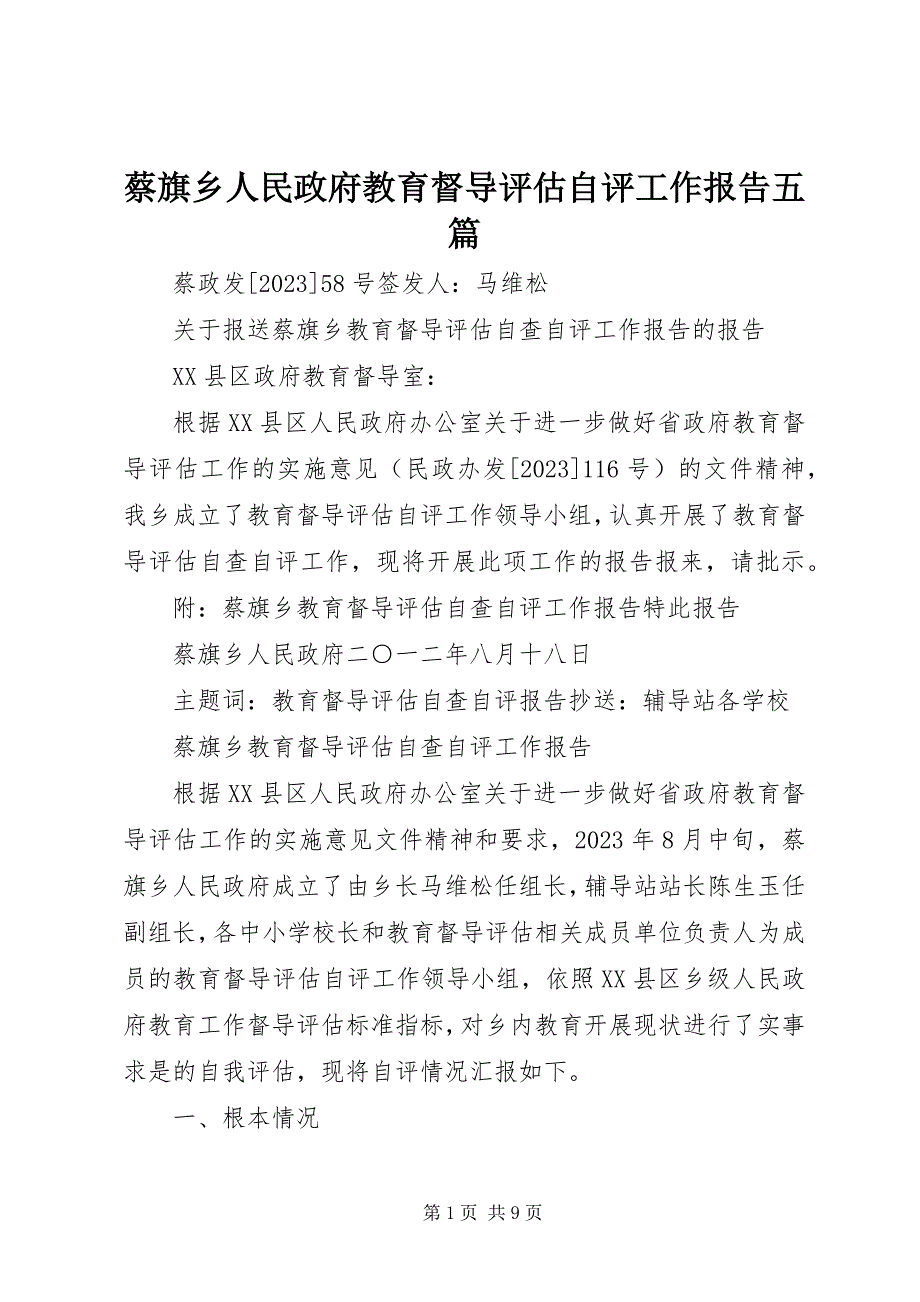 蔡旗乡人民政府教育督导评估自评工作报告五
篇
蔡政发[2023]58 号签发人：马维松
关于报送蔡旗乡教育督导评估自查自评工作报告的报告
XX 县区政府教育督导室：
根据 XX 县区人民政府办公室关于进一步做好省政府教育督
导评估工作的实施意见（民政办发[2023]116 号）的文件精神，
我乡成立了教育督导评估自评工作领导小组，认真开展了教育督
导评估自查自评工作，现将开展此项工作的报告报来，请批示。
附：蔡旗乡教育督导评估自查自评工作报告特此报告
蔡旗乡人民政府二〇一二年八月十八日
主题词：教育督导评估自查自评报告抄送：辅导站各学校
蔡旗乡教育督导评估自查自评工作报告
根据 XX 县区人民政府办公室关于进一步做好省政府教育督
导评估工作的实施意见文件精神和要求，2023 年 8 月中旬，蔡
旗乡人民政府成立了由乡长马维松任组长，辅导站站长陈生玉任
副组长，各中小学校长和教育督导评估相关成员单位负责人为成
员的教育督导评估自评工作领导小组，依照 XX 县区乡级人民政
府教育工作督导评估标准指标，对乡内教育开展现状进行了实事
求是的自我评估，现将自评情况汇报如下。
一、根本情况
第 1 页 共 9 页